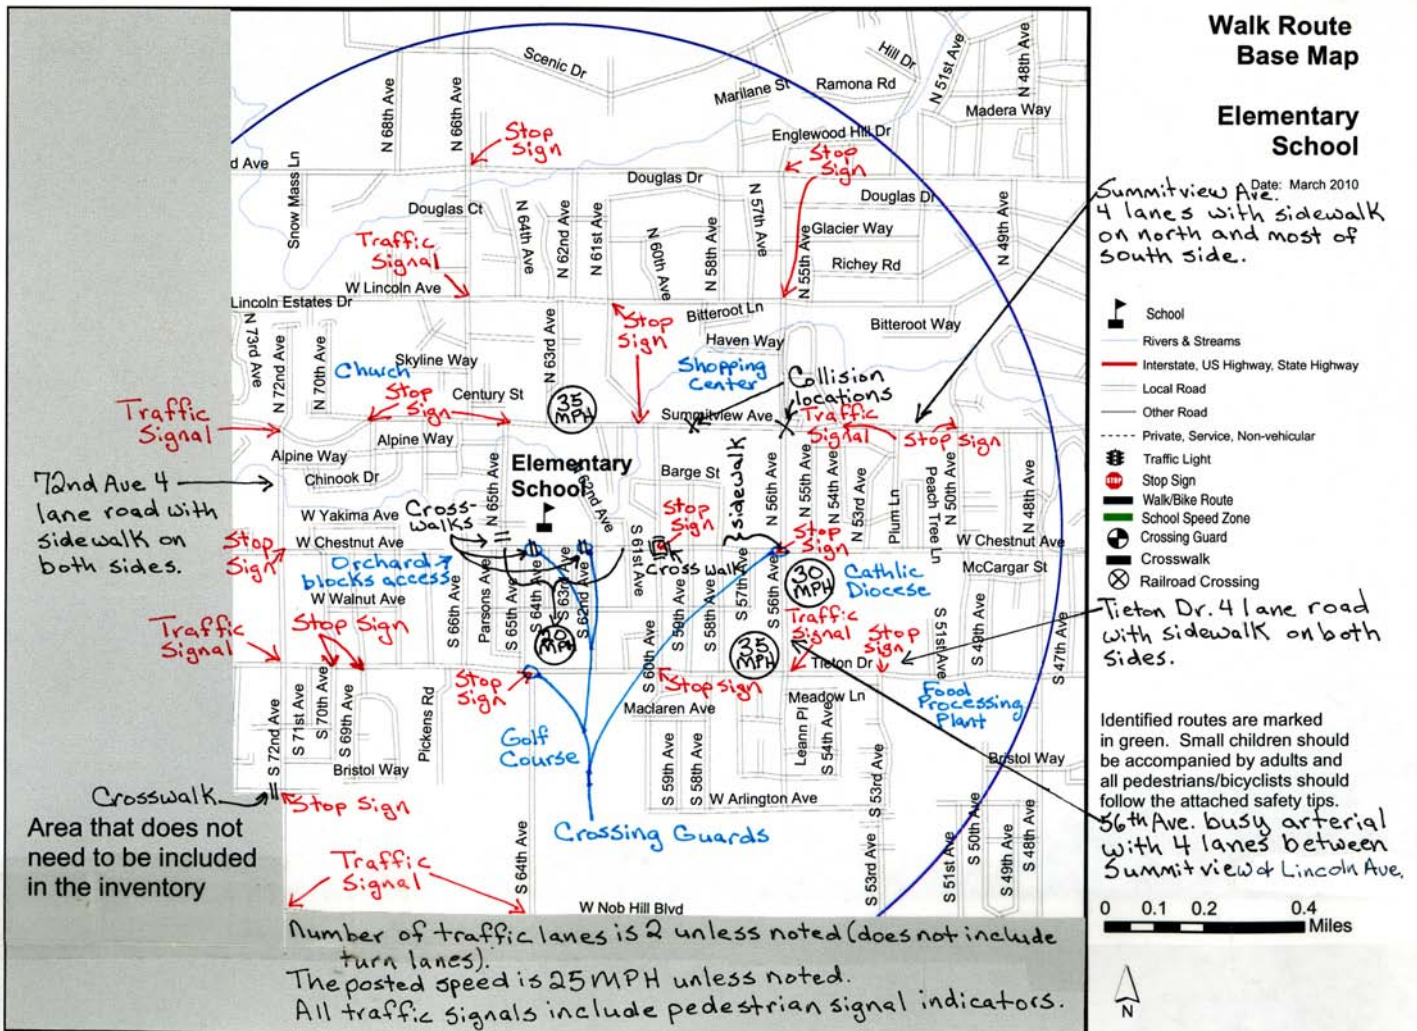 Walk Route
Base Map
Elementary
School
Date: March 2010
Summitview Ave.
4 lanes with sidewalk
on north and most of
south side.
School
Rivers & Streams
Interstate, US Highway, State Highway
Local Road
Other Road
Private, Service, Non-vehicular
Traffic Light
STOP Stop Sign
Walk/Bike Route
School Speed Zone
Crossing Guard
Crosswalk
Railroad Crossing
Tieton Dr. 4 lane road
with sidewalk on both
sides.
Identified routes are marked
in green. Small children should
be accompanied by adults and
all pedestrians/bicyclists should
follow the attached safety tips.
56th Ave. busy arterial
with 4 lanes between
Summitview & Lincoln Ave.
0 0.1 0.2 0.4
Miles
N
Scenic Dr
Hill Dr
N 51st Ave
N 48th Ave
N 68th Ave
N 66th Ave
Marilane St
Ramona Rd
Madera Way
Englewood Hill Dr
Stop
Sign
Stop
Sign
d Ave
Snow Mass Ln
Douglas Dr
Douglas Dr
Douglas Ct
N 64th Ave
N 62nd Ave
N 61st Ave
N 60th Ave
N 58th Ave
N 57th Ave
N 55th Ave
Glacier Way
N 49th Ave
Richey Rd
Traffic
Signal
W Lincoln Ave
Lincoln Estates Dr
Bitteroot Ln
Bitteroot Way
Stop
Sign
Haven Way
N 73rd Ave
N 72nd Ave
N 70th Ave
N 63rd Ave
Skyline Way
Church
Century St
Stop
Sign
35
MPH
Shopping
Center
Collision
locations
Summitview Ave
Traffic
Signal
Stop Sign
Traffic
Signal
Alpine Way
Alpine Way
Chinook Dr
72nd Ave 4
lane road with
sidewalk on
both sides.
Elementary
School
N 65th Ave
N 62nd Ave
Barge St
sidewalk
N 56th Ave
N 55th Ave
N 54th Ave
N 53rd Ave
Plum Ln
Peach Tree Ln
N 50th Ave
N 48th Ave
W Yakima Ave
Cross-
walks
Stop
Sign
W Chestnut Ave
W Chestnut Ave
Stop
Sign
Stop
Sign
Crosswalk
S 61st Ave
Orchard
blocks access
30
MPH
Cathlic
Diocese
McCargar St
W Walnut Ave
S 66th Ave
Parsons Ave
S 65th Ave
S 64th Ave
S 63rd Ave
S 62nd Ave
S 60th Ave
S 59th Ave
S 58th Ave
S 57th Ave
S 56th Ave
S 51st Ave
S 49th Ave
S 47th Ave
Traffic
Signal
Stop Sign
20
MPH
35
MPH
Traffic
Signal
Stop
Sign
Tieton Dr
Stop
Sign
Stop Sign
Meadow Ln
Maclaren Ave
Food
Processing
Plant
S 72nd Ave
S 71st Ave
S 70th Ave
S 69th Ave
Pickens Rd
Golf
Course
Leann Pl
S 54th Ave
S 53rd Ave
Bristol Way
Bristol Way
S 59th Ave
S 58th Ave
W Arlington Ave
Crosswalk
Stop Sign
Area that does not
need to be included
in the inventory
Crossing Guards
Traffic
Signal
S 64th Ave
S 53rd Ave
S 51st Ave
S 50th Ave
S 49th Ave
S 48th Ave
W Nob Hill Blvd
Number of traffic lanes is 2 unless noted (does not include
turn lanes).
The posted speed is 25 MPH unless noted.
All traffic signals include pedestrian signal indicators.